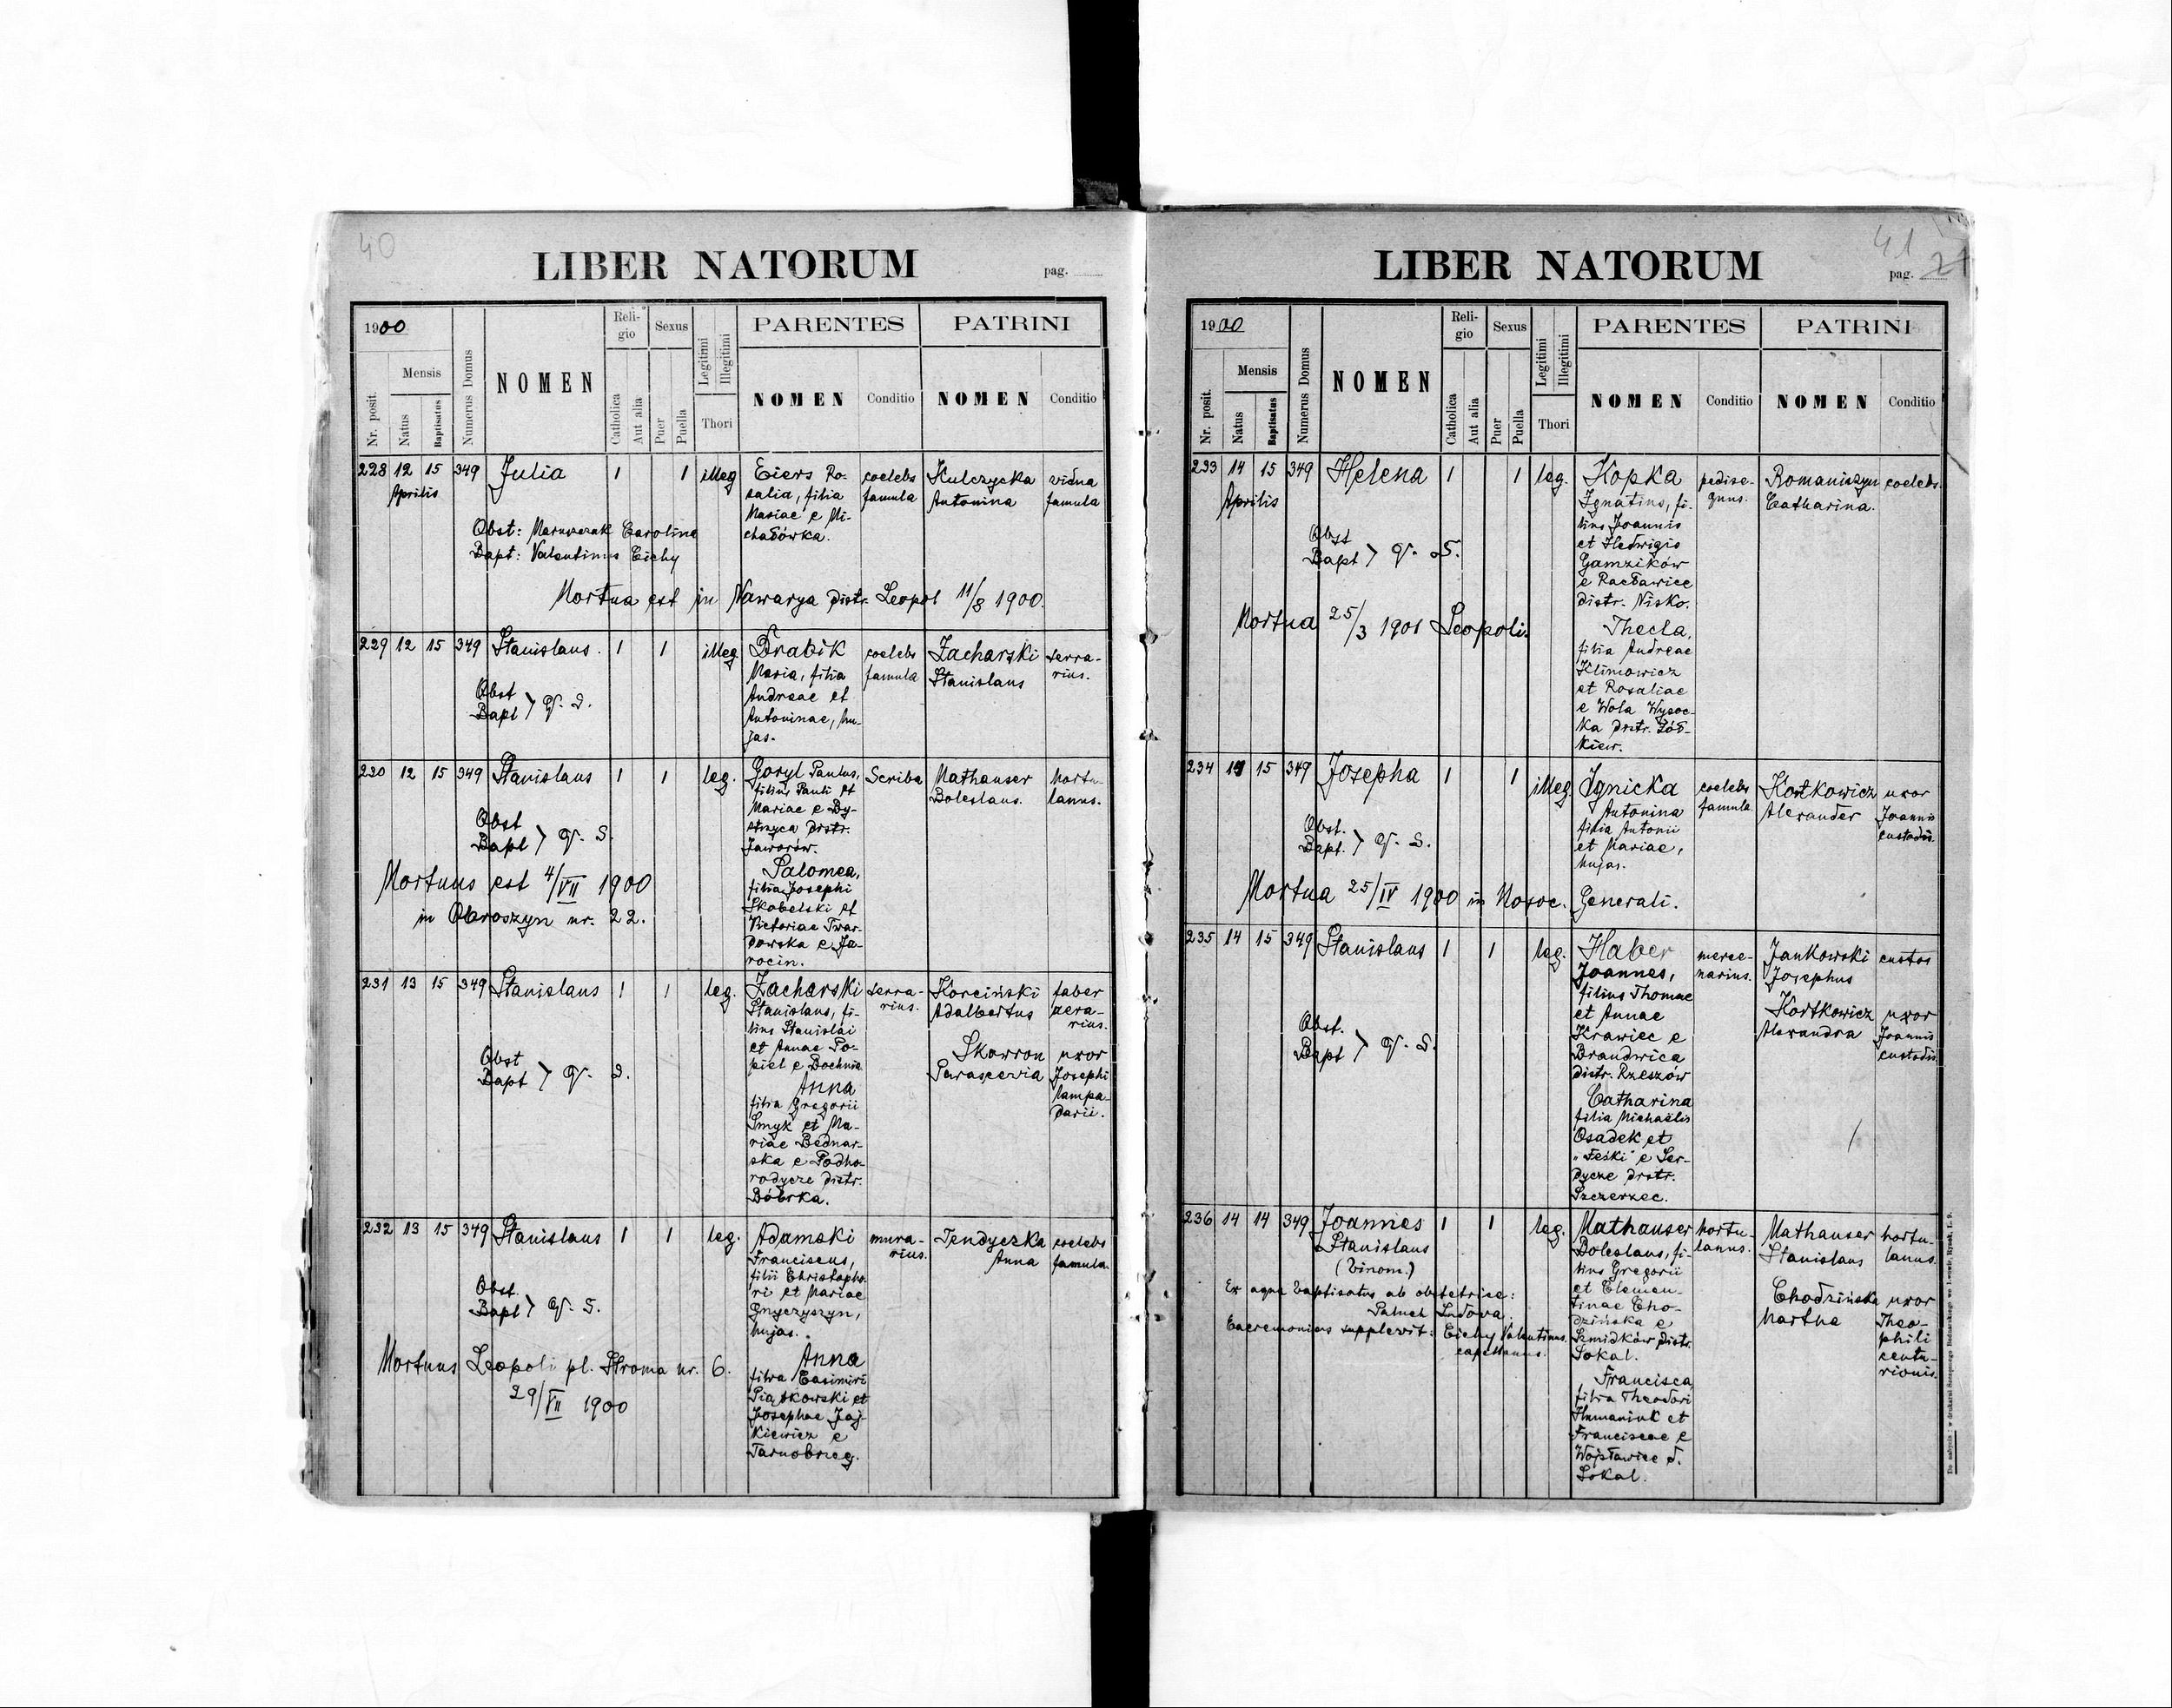 40
LIBER NATORUM
pag.
1900
Nr. posit.
Mensis
Natus
Baptisatus
Numerus Domus
NOMEN
Religio
Catholica
Aut alia
Sexus
Puer
Puella
Legitimi
Illegitimi
Thori
PARENTES
NOMEN
Conditio
PATRINI
NOMEN
Conditio
228 12 15 349 Julia 1 1 illeg
Aprilis
Eiers Ro-
salia, filia
Mariae e Mi-
chałówka.
coelebs
famula
Kulczycka
Antonina
vidua
famula
Obst: Maruszczak Carolina
Bapt: Valentinus Cichy
Mortua est in Nawarya distr. Leopol 11/8 1900.
229 12 15 349 Stanislaus. 1 1 illeg
Drabik
Maria, filia
Andreae et
Antoninae, hu-
jas.
coelebs
famula
Zacharski
Stanislaus
serra-
rius.
Obst
Bapt > q. s.
230 12 15 349 Stanislaus 1 1 leg.
Goryl Paulus,
filius Pauli et
Mariae e By-
strzyca distr.
Jaworów.
Salomea,
filia Josephi
Skobelski et
Victoriae Twar-
dowska e Ja-
rocin.
Scriba
Mathauser
Boleslaus.
hortu-
lanus.
Obst
Bapt > q. s.
Mortuus est 4/VII 1900
in Obroszyn nr. 22.
231 13 15 349 Stanislaus 1 1 leg.
Zacharski
Stanislaus, fi-
lius Stanislai
et Annae Po-
piel e Bochnia
Anna
filia Gregorii
Smyk et Ma-
riae Bednar-
ska e Podho-
rodycze distr.
Bóbrka.
serra-
rius.
Korciński
Adalbertus
faber
aera-
rius.
Skowron
Parascevia
uxor
Josephi
lampa-
darii.
Obst
Bapt > q. s.
232 13 15 349 Stanislaus 1 1 leg.
Adamski
Franciscus,
filii Christopho-
ri et Mariae
Gnyczyszyn,
hujas.
Anna
filia Casimiri
Piątkowski et
Josephae Zaj-
kiewicz e
Tarnobrzeg.
mura-
rius.
Tendyczka
Anna
coelebs
famula.
Obst
Bapt > q. s.
Mortuus Leopoli pl. Stroma nr. 6.
29/VII 1900
41
LIBER NATORUM
pag. 21
1900
Nr. posit.
Mensis
Natus
Baptisatus
Numerus Domus
NOMEN
Religio
Catholica
Aut alia
Sexus
Puer
Puella
Legitimi
Illegitimi
Thori
PARENTES
NOMEN
Conditio
PATRINI
NOMEN
Conditio
233 14 15 349 Helena 1 1 leg.
Aprilis
Kopka
Ignatius, fi-
lius Joannis
et Hedwigis
Gamzików
e Racławice
distr. Nisko.
Thecla,
filia Andreae
Klimowicz
et Rosaliae
e Wola Wysoc-
ka distr. Żół-
kiew.
pedise-
quus.
Romaniszyn
Catharina.
coelebs.
Obst
Bapt > q. s.
Mortua 25/3 1901 Leopoli.
234 15 349 Josepha 1 1 illeg.
Ignicka
Antonina
filia Antonii
et Mariae,
hujas.
coelebs
famula
Kortkowicz
Alexander
uxor
Joannis
custodis.
Obst.
Bapt. > q. s.
Mortua 25/IV 1900 in Nosoc. Generali.
235 14 15 349 Stanislaus 1 1 leg.
Haber
Joannes,
filius Thomae
et Annae
Krawiec e
Brandwica
distr. Rzeszów
Catharina
filia Michaëlis
Osadek et
"Feśki" e Ser-
dycze distr.
Szczerzec.
merce-
narius.
Jankowski
Josephus
custos
Kortkowicz
Alexandra
uxor
Joannis
custodis
Obst.
Bapt > q. s.
236 14 14 349 Joannes 1 1 leg.
Stanislaus
(binom.)
Mathauser
Boleslaus, fi-
lius Gregorii
et Clemen-
tinae Cho-
dzińska e
Szmidków distr.
Sokal.
Francisca
filia Theodori
Humaniuk et
Franciscae e
Wojsławice d.
Sokal.
hortu-
lanus.
Mathauser
Stanislaus
hortu-
lanus.
Chodzińska
Martha
uxor
Theo-
phili
centu-
rionis.
Ex aqua baptisatus ab obstetrice:
Paluch Ludova;
Caeremonias supplevit: Cichy Valentinus.
capellanus.